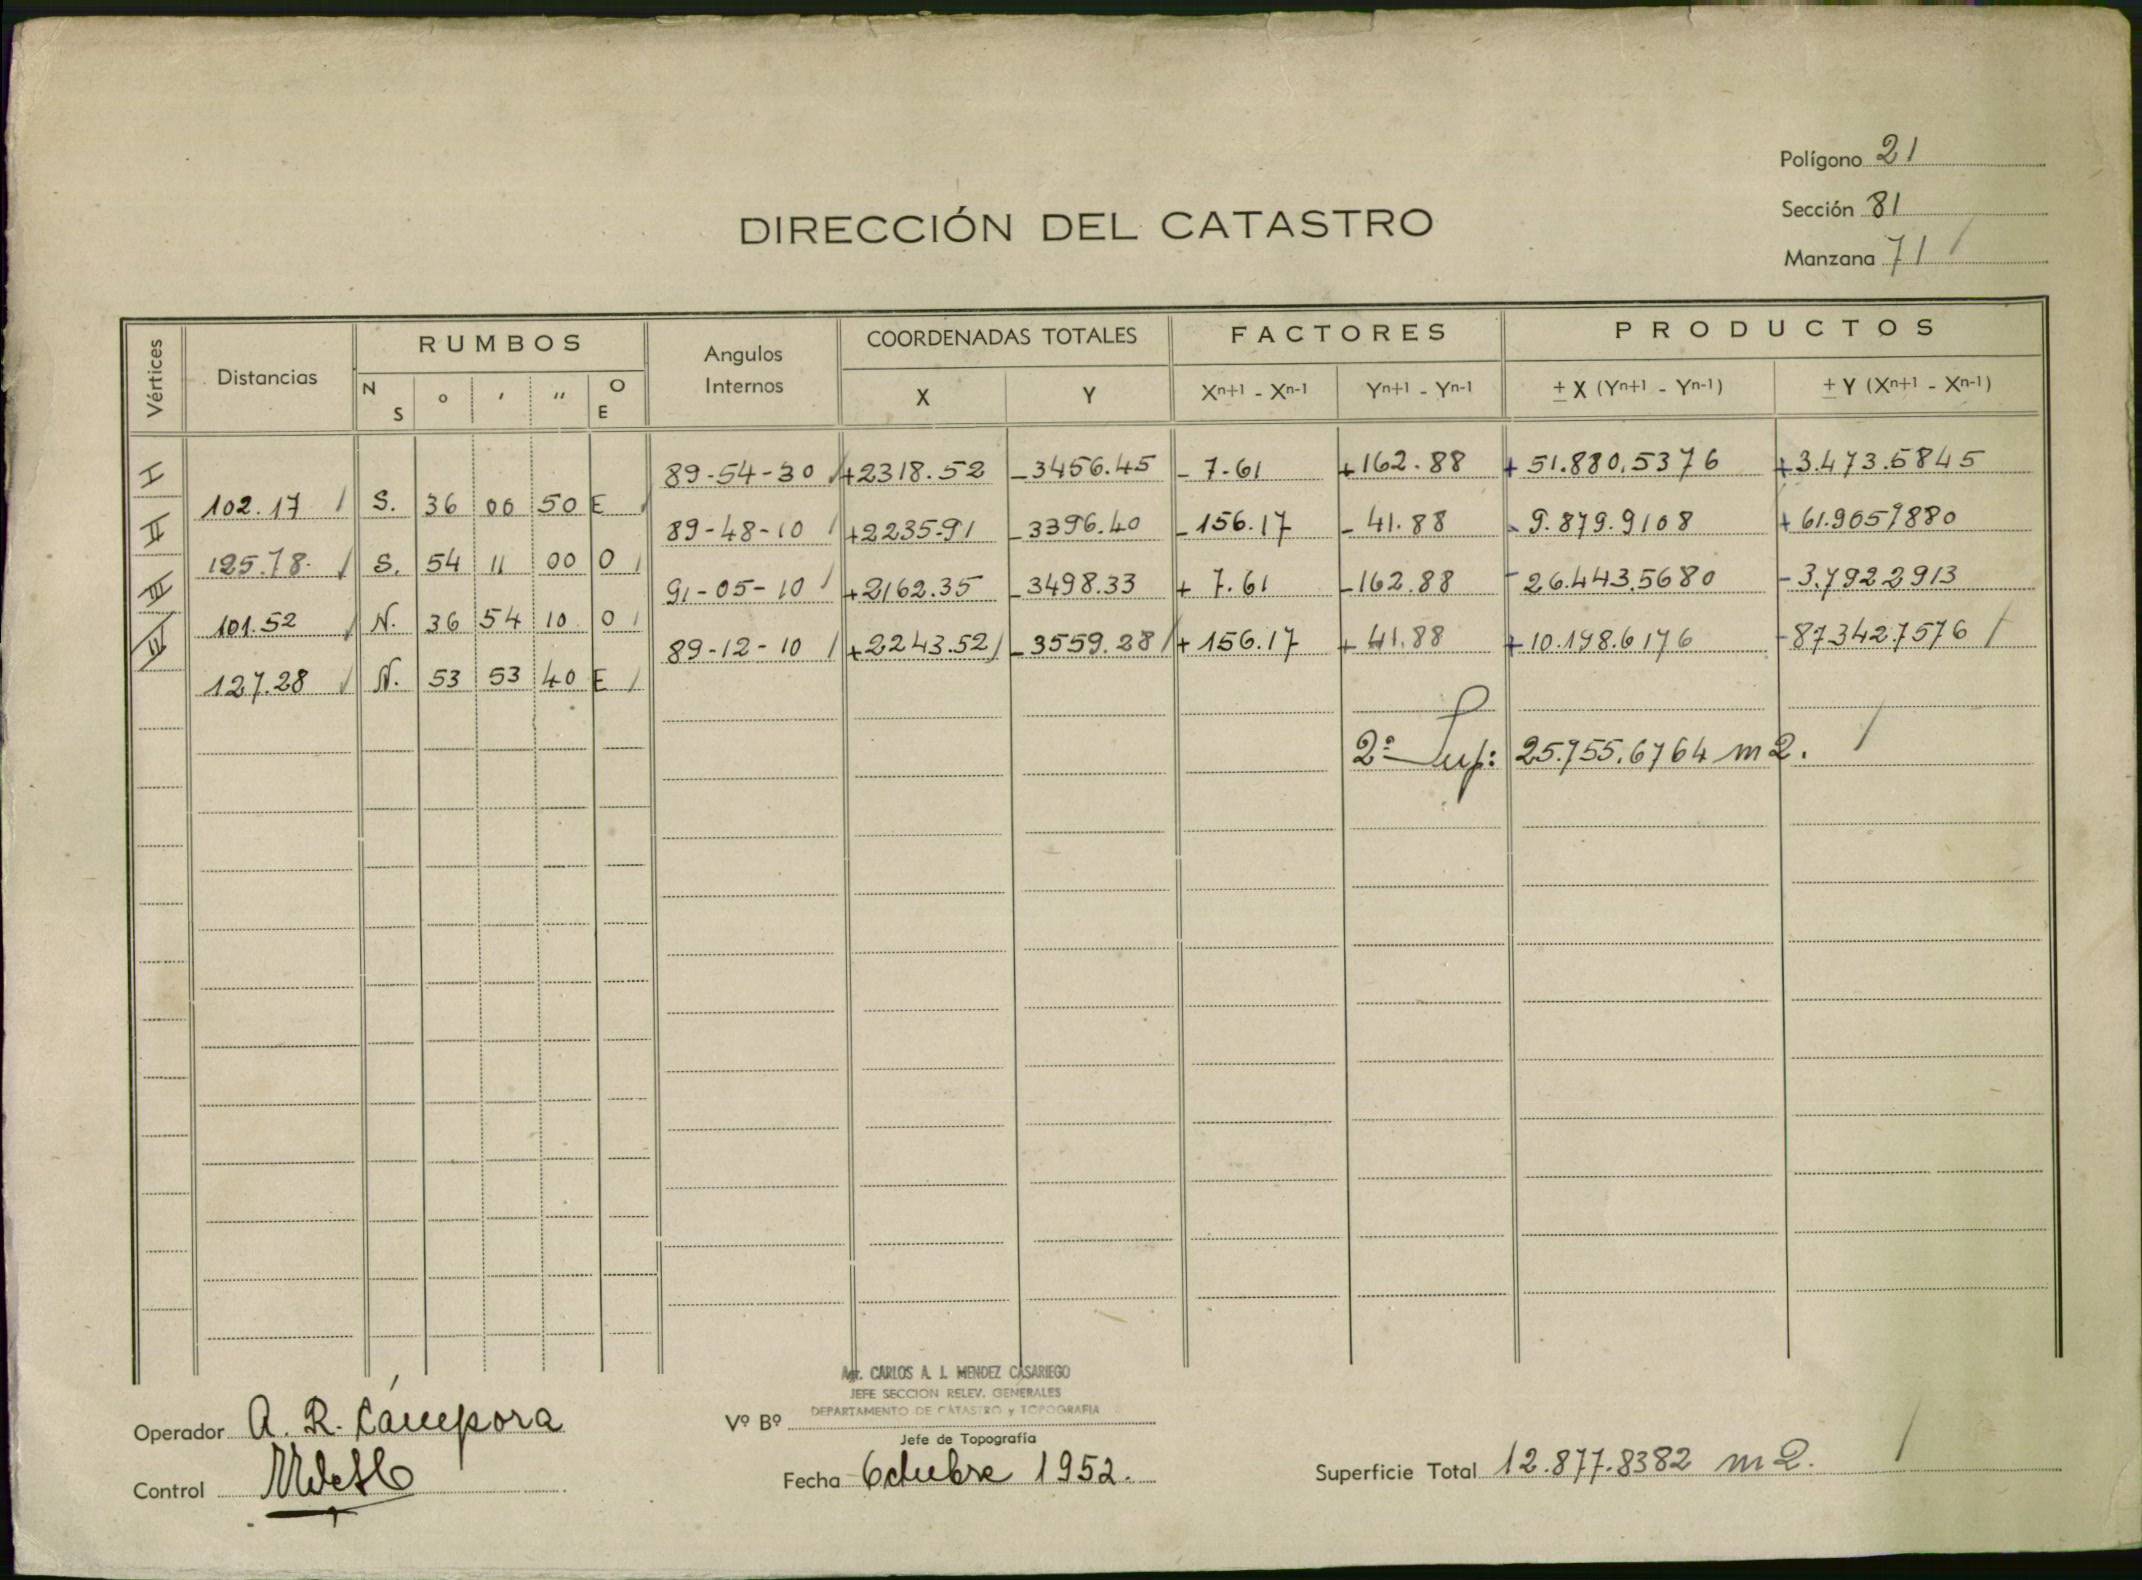 Polígono 21
Sección 81
DIRECCIÓN DEL CATASTRO
Manzana 71
Vértices Distancias RUMBOS Angulos Internos COORDENADAS TOTALES FACTORES PRODUCTOS
N S ° ' '' O E X Y Xn+1 - Xn-1 Yn+1 - Yn-1 ± X (Yn+1 - Yn-1) ± Y (Xn+1 - Xn-1)
I 89-54-30 +2318.52 -3456.45 - 7.61 +162.88 + 51.880.5376 +3.473.5845
102.17 S. 36 00 50 E
II 89-48-10 +2235.91 -3396.40 -156.17 - 41.88 - 9.879.9108 + 61.9059880
125.78 S. 54 11 00 O
III 91-05-10 +2162.35 -3498.33 + 7.61 -162.88 - 26.443.5680 -3.7922913
101.52 N. 36 54 10 O
IV 89-12-10 +2243.52 -3559.28 + 156.17 + 41.88 + 10.198.6176 -87.342.7576
127.28 N. 53 53 40 E
2ª Sup: 25.755.6764 m2.
Agr. CARLOS A. J. MENDEZ CASARIEGO
JEFE SECCION RELEV. GENERALES
DEPARTAMENTO DE CATASTRO y TOPOGRAFIA
Operador A. R. Cámpora
Vº Bº
Jefe de Topografía
Control
Fecha Octubre 1952.
Superficie Total 12.877.8382 m2.